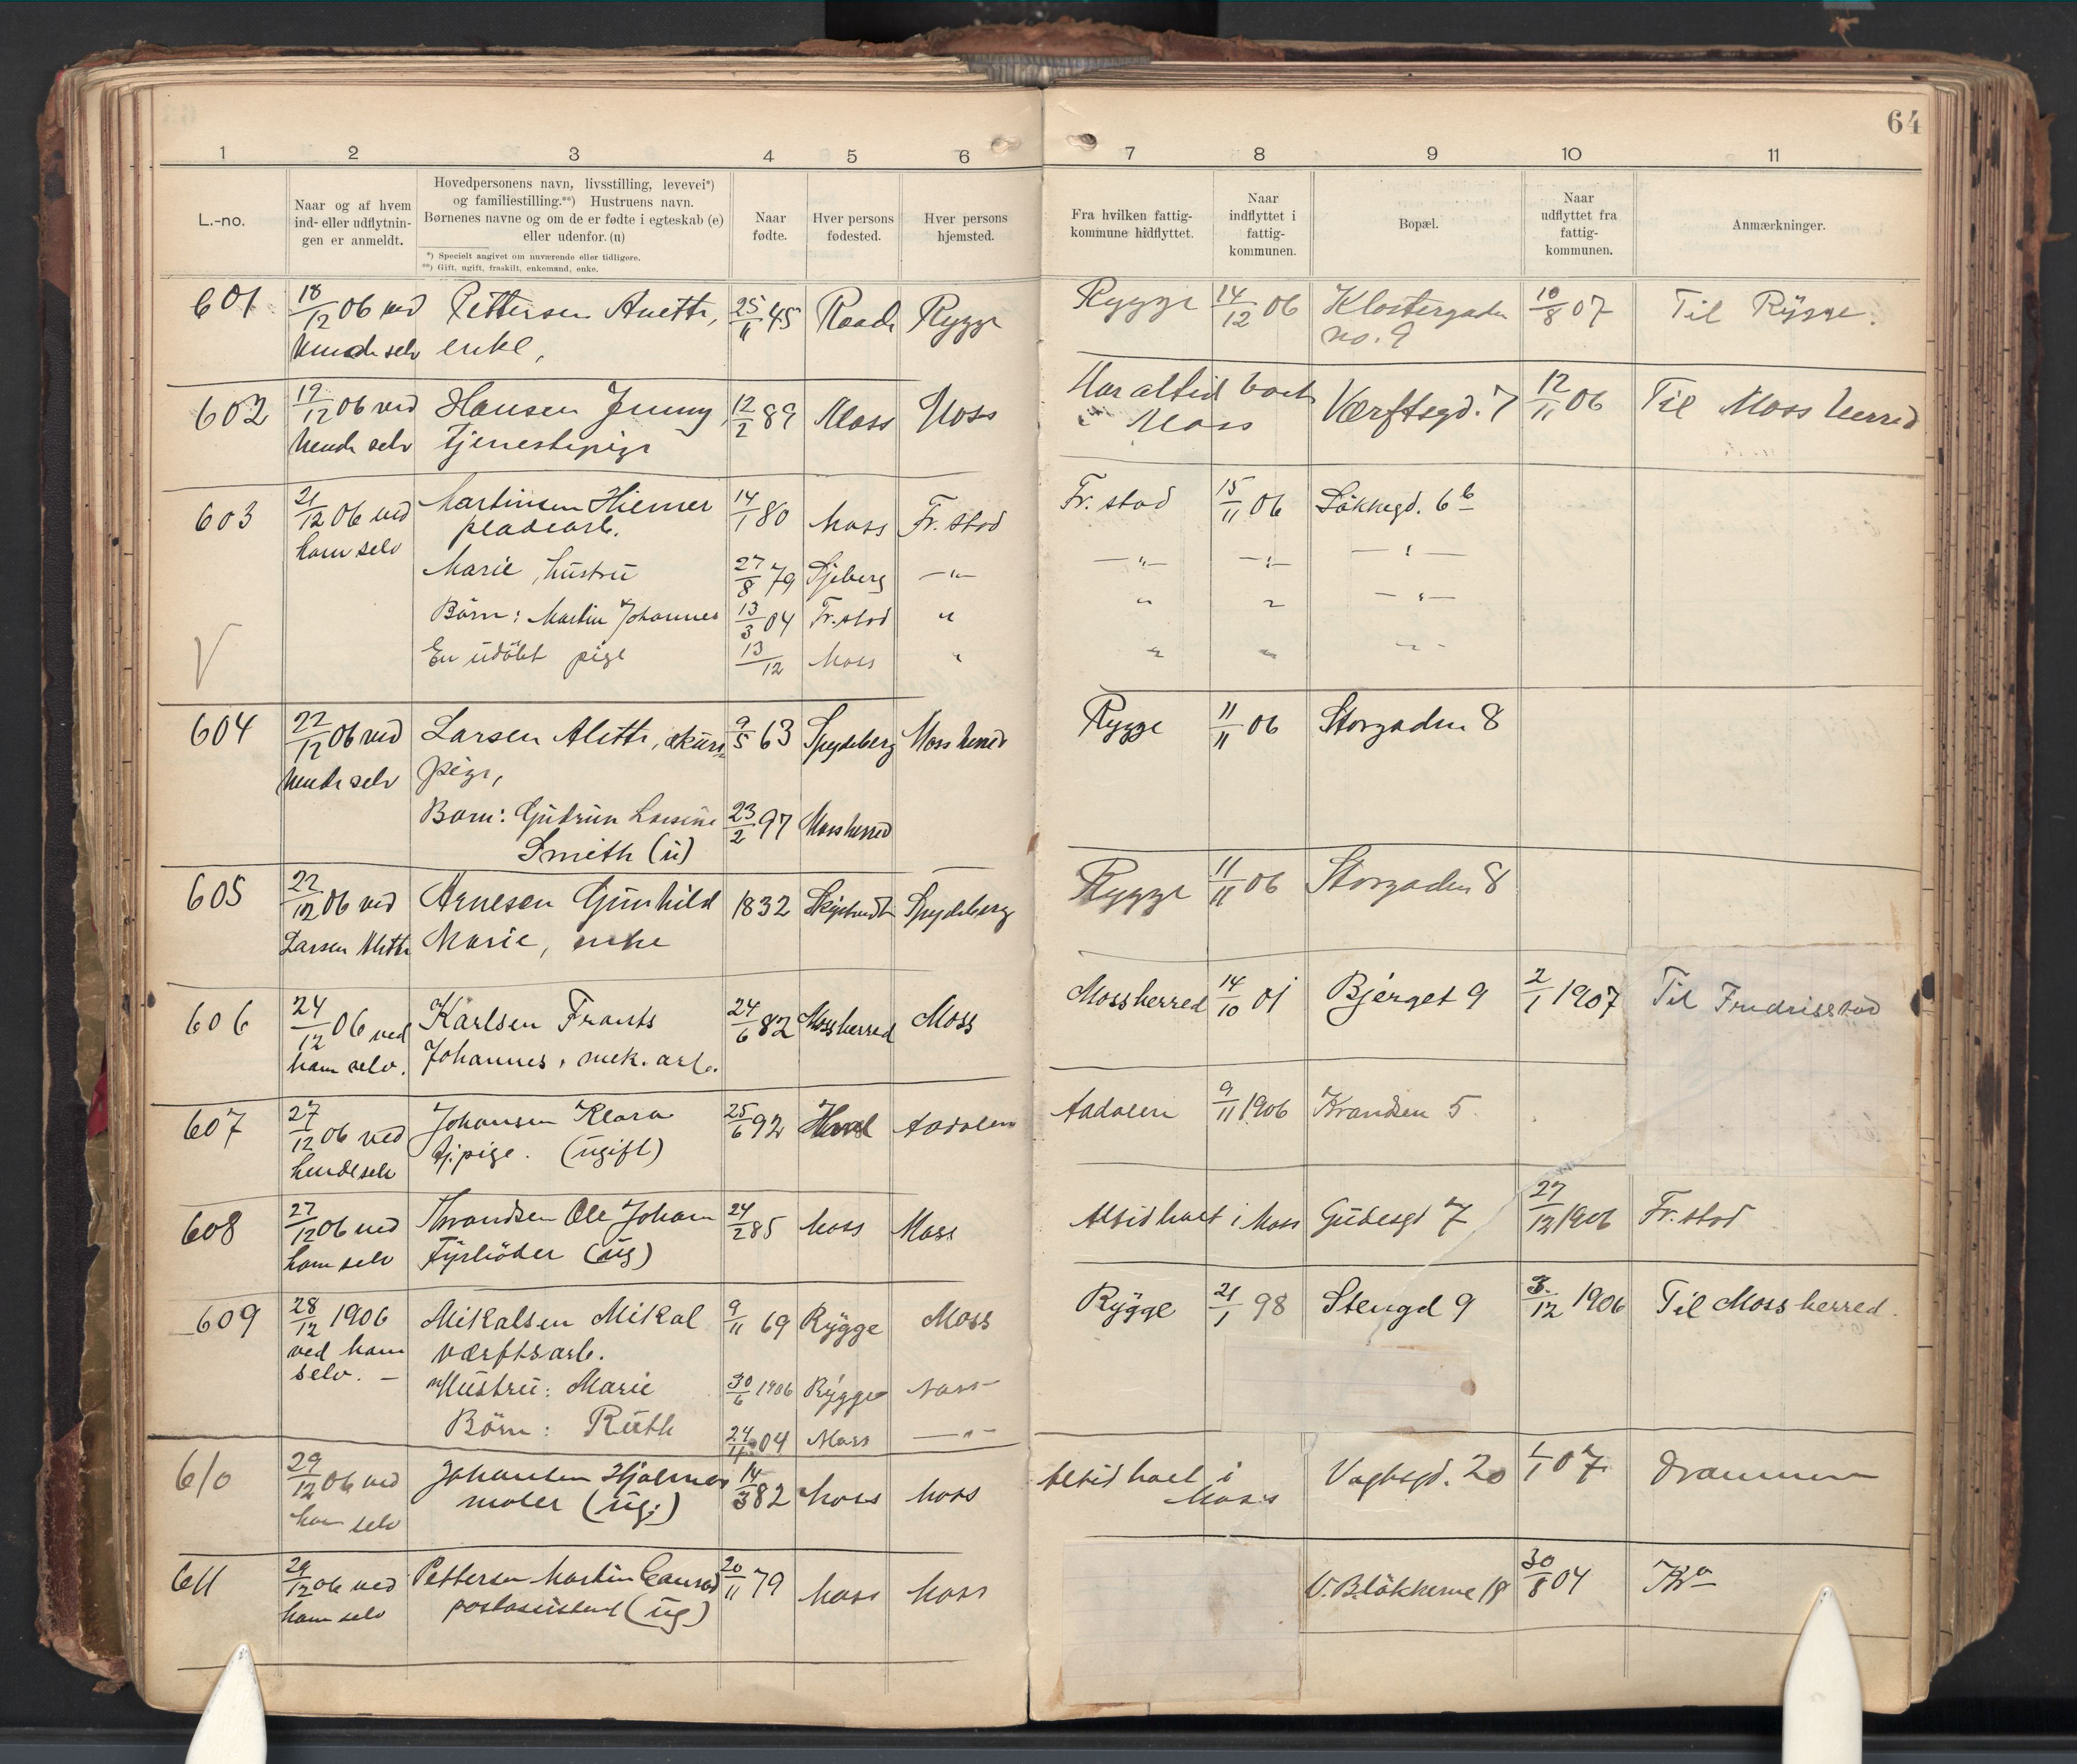 64
1 2 3 4 5 6 7 8 9 10 11
L.-no.
Naar og af hvem
ind- eller udflytnin-
gen er anmeldt.
Hovedpersonens navn, livsstilling, levevei*)
og familiestilling.**) Hustruens navn.
Børnenes navne og om de er fødte i egteskab (e)
eller udenfor. (u)
*) Specielt angivet om nuværende eller tidligere.
**) Gift, ugift, fraskilt, enkemand, enke.
Naar
fødte.
Hver persons
fødested.
Hver persons
hjemsted.
Fra hvilken fattig-
kommune hidflyttet.
Naar
indflyttet i
fattig-
kommunen.
Bopæl.
Naar
udflyttet fra
fattig-
kommunen.
Anmærkninger.
601 18/12 06 ved Pettersen Anette, 25/11 45 Raade Rygge Rygge 14/12 06 Klostergaden 10/8 07 Til Rygge.
hende selv enke, no. 9
602 19/12 06 ved Hansen Jenny, 12/2 89 Moss Moss Har altid boet Værftsgd. 7 12/11 06 Til Moss herred
hende selv tjenestepige i Moss
603 21/12 06 ved Martinsen Hiemer 14/1 80 Moss Fr.stad Fr.stad 15/11 06 Løkkegd. 6b
ham selv pladearb.
Marie, hustru 27/8 79 Sjeberg —"— —"— —"— —"—
Børn: Martin Johannes 13/3 04 Fr.stad " " " —"—
V En udøbt pige 13/12 Moss " " " —"—
604 22/12 06 ved Larsen Alette, skure 9/5 63 Spydeberg Moss herred Rygge 11/11 06 Storgaden 8
hende selv pige,
Barn: Gudrun Lovise 23/2 97 Moss herred
Smith (u)
605 22/12 06 ved Arnesen Gunhild 1832 Skiptvedt Spydeberg Rygge 11/11 06 Storgaden 8
Larsen Alette Marie, enke
606 24/12 06 ved Karlsen Frants 24/6 82 Mossherred Moss Mossherred 14/10 01 Bjerget 9 2/1 1907 Til Fredriksstad
ham selv. Johannes, mek. arb.
607 27/12 06 ved Johansen Klara 25/6 92 Aadalen Aadalen 9/11 1906 Kransen 5
hende selv tj.pige. (ugift)
608 27/12 06 ved Thrandsen Ole Johan 24/2 85 Moss Moss Altid boet i Moss Gudesgd 7 27/12 1906 Fr.stad
ham selv Fyrbøder (ug)
609 28/12 1906 Mikalsen Mikal 9/11 69 Rygge Moss Rygge 21/1 98 Stengd 9 3/12 1906 Til Moss herred.
ved ham værftsarb.
selv. — Hustru: Marie 30/6 1906 Rygge Moss
Børn: Ruth 24/11 04 Moss —"—
610 29/12 06 ved Johansen Hjalmar 14/3 82 Moss Moss Altid boet i Vogtsgd. 20 1/1 07 Drammen
ham selv maler (ug.) Moss
611 29/12 06 ved Pettersen Martin Conrad 20/11 79 Moss Moss V. Bløkkerne 18 30/8 04 Kra
ham selv postassistent (ug)